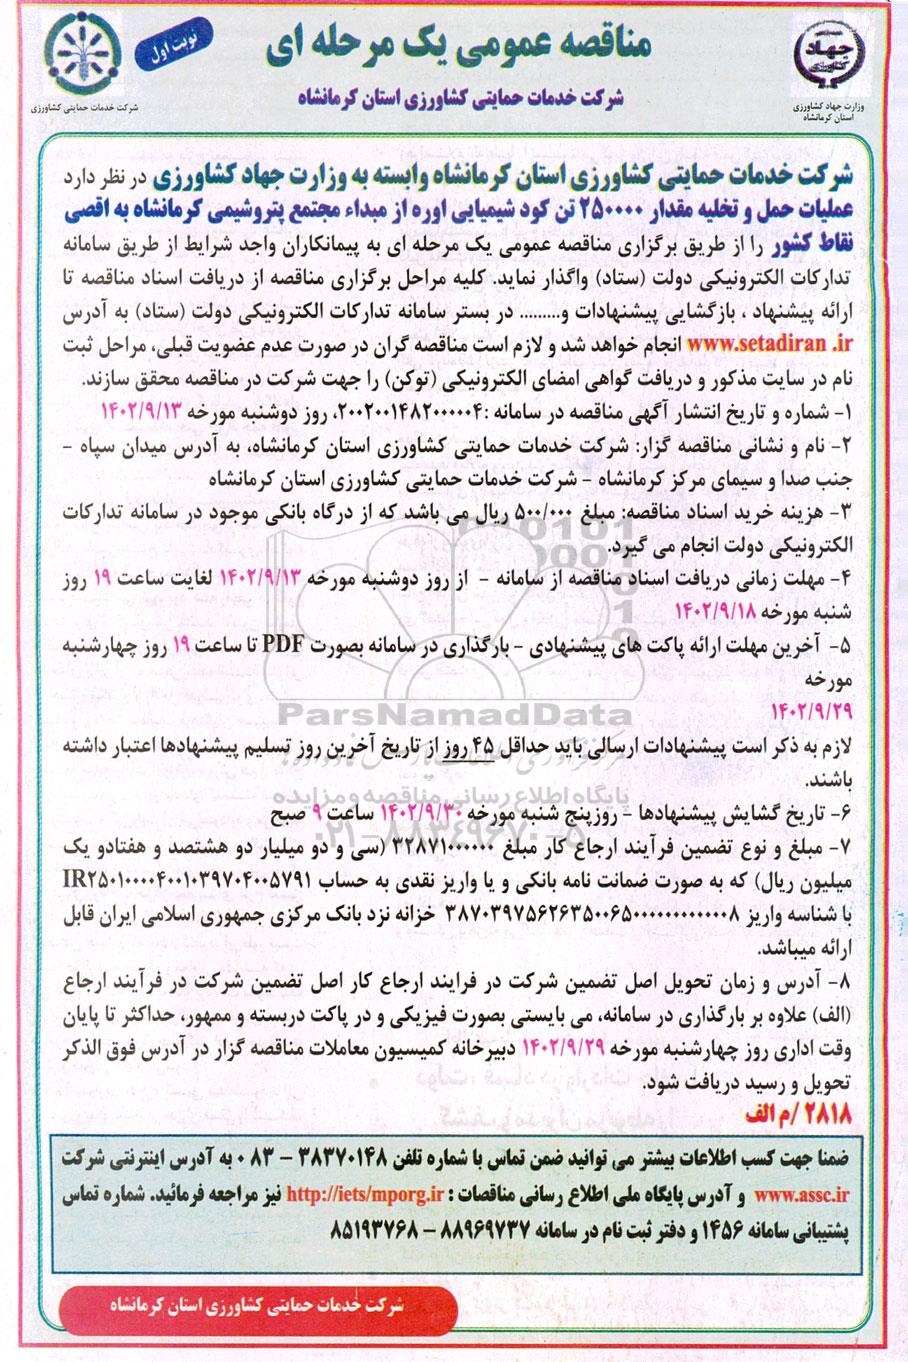 مناقصه عمومی یک مرحله ای
نوبت اول
شرکت خدمات حمایتی کشاورزی استان کرمانشاه
جهاد کشاورزی
وزارت جهاد کشاورزی
استان کرمانشاه
شرکت خدمات حمایتی کشاورزی
شرکت خدمات حمایتی کشاورزی استان کرمانشاه وابسته به وزارت جهاد کشاورزی در نظر دارد
عملیات حمل و تخلیه مقدار ۲۵۰۰۰۰ تن کود شیمیایی اوره از مبداء مجتمع پتروشیمی کرمانشاه به اقصی
نقاط کشور را از طریق برگزاری مناقصه عمومی یک مرحله ای به پیمانکاران واجد شرایط از طریق سامانه
تدارکات الکترونیکی دولت (ستاد) واگذار نماید. کلیه مراحل برگزاری مناقصه از دریافت اسناد مناقصه تا
ارائه پیشنهاد ، بازگشایی پیشنهادات و......... در بستر سامانه تدارکات الکترونیکی دولت (ستاد) به آدرس
www.setadiran .ir انجام خواهد شد و لازم است مناقصه گران در صورت عدم عضویت قبلی، مراحل ثبت
نام در سایت مذکور و دریافت گواهی امضای الکترونیکی (توکن) را جهت شرکت در مناقصه محقق سازند.
۱- شماره و تاریخ انتشار آگهی مناقصه در سامانه :۲۰۰۲۰۰۱۴۸۲۰۰۰۰۰۴، روز دوشنبه مورخه ۱۴۰۲/۹/۱۳
۲- نام و نشانی مناقصه گزار: شرکت خدمات حمایتی کشاورزی استان کرمانشاه، به آدرس میدان سپاه -
جنب صدا و سیمای مرکز کرمانشاه - شرکت خدمات حمایتی کشاورزی استان کرمانشاه
۳- هزینه خرید اسناد مناقصه: مبلغ ۵۰۰/۰۰۰ ریال می باشد که از درگاه بانکی موجود در سامانه تدارکات
الکترونیکی دولت انجام می گیرد.
۴- مهلت زمانی دریافت اسناد مناقصه از سامانه - از روز دوشنبه مورخه ۱۴۰۲/۹/۱۳ لغایت ساعت ۱۹ روز
شنبه مورخه ۱۴۰۲/۹/۱۸
۵- آخرین مهلت ارائه پاکت های پیشنهادی - بارگذاری در سامانه بصورت PDF تا ساعت ۱۹ روز چهارشنبه
مورخه
۱۴۰۲/۹/۲۹
ParsNamadData
لازم به ذکر است پیشنهادات ارسالی باید حداقل ۴۵ روز از تاریخ آخرین روز تسلیم پیشنهادها اعتبار داشته
باشند.
پایگاه اطلاع رسانی مناقصه و مزایده
۶- تاریخ گشایش پیشنهادها - روزپنج شنبه مورخه ۱۴۰۲/۹/۳۰ ساعت ۹ صبح
۰۲۱-۸۸۳۴۹۶۷۰-۵
۷- مبلغ و نوع تضمین فرآیند ارجاع کار مبلغ ۳۲۸۷۱۰۰۰۰۰۰ (سی و دو میلیار دو هشتصد و هفتادو یک
میلیون ریال) که به صورت ضمانت نامه بانکی و یا واریز نقدی به حساب IR۲۵۰۱۰۰۰۰۴۰۰۱۰۳۹۷۰۴۰۰۵۷۹۱
با شناسه واریز ۳۸۷۰۳۹۷۵۶۲۶۳۵۰۰۶۵۰۰۰۰۰۰۰۰۰۰۰۰۸ خزانه نزد بانک مرکزی جمهوری اسلامی ایران قابل
ارائه میباشد.
۸- آدرس و زمان تحویل اصل تضمین شرکت در فرایند ارجاع کار اصل تضمین شرکت در فرآیند ارجاع
(الف) علاوه بر بارگذاری در سامانه، می بایستی بصورت فیزیکی و در پاکت دربسته و ممهور، حداکثر تا پایان
وقت اداری روز چهارشنبه مورخه ۱۴۰۲/۹/۲۹ دبیرخانه کمیسیون معاملات مناقصه گزار در آدرس فوق الذکر
تحویل و رسید دریافت شود.
۲۸۱۸ /م الف
ضمنا جهت کسب اطلاعات بیشتر می توانید ضمن تماس با شماره تلفن ۳۸۳۷۰۱۴۸ - ۰۸۳ به آدرس اینترنتی شرکت
www.assc.ir و آدرس پایگاه ملی اطلاع رسانی مناقصات : http://iets/mporg.ir نیز مراجعه فرمائید. شماره تماس
پشتیبانی سامانه ۱۴۵۶ و دفتر ثبت نام در سامانه ۸۸۹۶۹۷۳۷ - ۸۵۱۹۳۷۶۸
شرکت خدمات حمایتی کشاورزی استان کرمانشاه